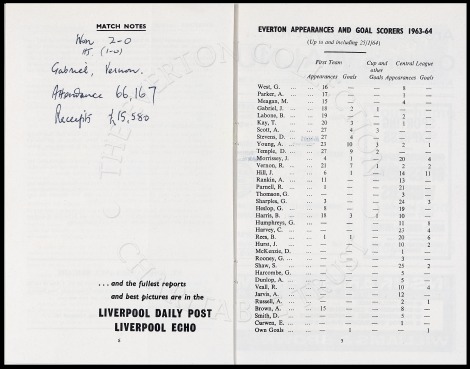 MATCH NOTES
Won 2-0
HT (1-0)
Gabriel, Vernon.
Attendance 66,167
Receipts £15,580
...and the fullest reports
and best pictures are in the
LIVERPOOL DAILY POST
LIVERPOOL ECHO
EVERTON APPEARANCES AND GOAL SCORERS 1963-64
(Up to and including 25/1/64)
First Team Cup and other Central League
Appearances Goals Goals Appearances Goals
West, G. ... 16 — — 8 —
Parker, A. ... 17 — — 1 —
Meagan, M. ... 15 — — 4 —
Gabriel, J. ... 18 2 1 — —
Labone, B. ... 19 — — 2 —
Kay, T. ... 20 3 — 1 —
Scott, A. ... 27 4 3 — —
Stevens, D. ... 27 4 — — —
Young, A. ... 23 10 3 2 1
Temple, D. ... 27 9 2 — —
Morrissey, J. ... 4 1 — 20 4
Vernon, R. ... 21 7 1 2 2
Hill, J. ... 6 1 — 14 11
Rankin, A. ... 11 — — 13 —
Parnell, R. ... 1 — — 21 —
Thomson, G. ... — — — 3 —
Sharples, G. ... 3 — — 24 3
Heslop, G. ... 8 — — 19 —
Harris, B. ... 18 3 1 10 —
Humphreys, G. ... — — — 11 8
Harvey, C. ... — — — 23 4
Rees, B. ... 1 1 — 20 6
Hurst, J. ... — — — 10 2
McKenzie, D. ... — — — 1 —
Rooney, G. ... — — — 3 —
Shaw, S. ... — — — 25 2
Harcombe, G. ... — — — 5 —
Dunlop, A. ... — — — 5 —
Veall, R. ... — — — 10 4
Jarvis, A. ... — — — 12 —
Russell, A. ... — — — 2 1
Brown, A. ... 15 — — 8 —
Smith, D. ... — — — 5 —
Carwen, E. ... — — — 1 —
Own Goals ... 1 — 1
7